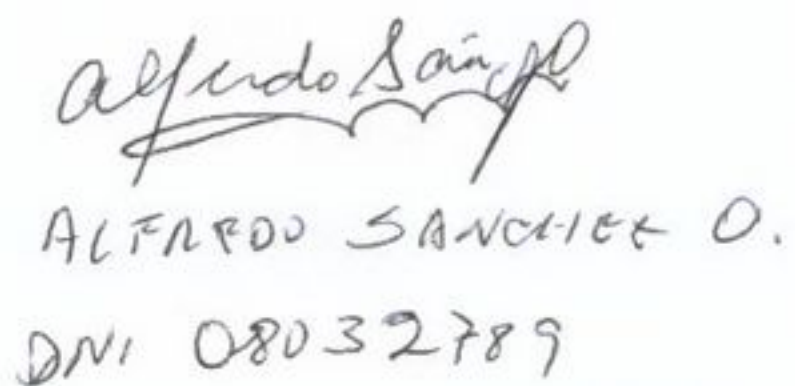 Alfredo Sánch
ALFREDO SANCHEZ O.
DNI 08032789